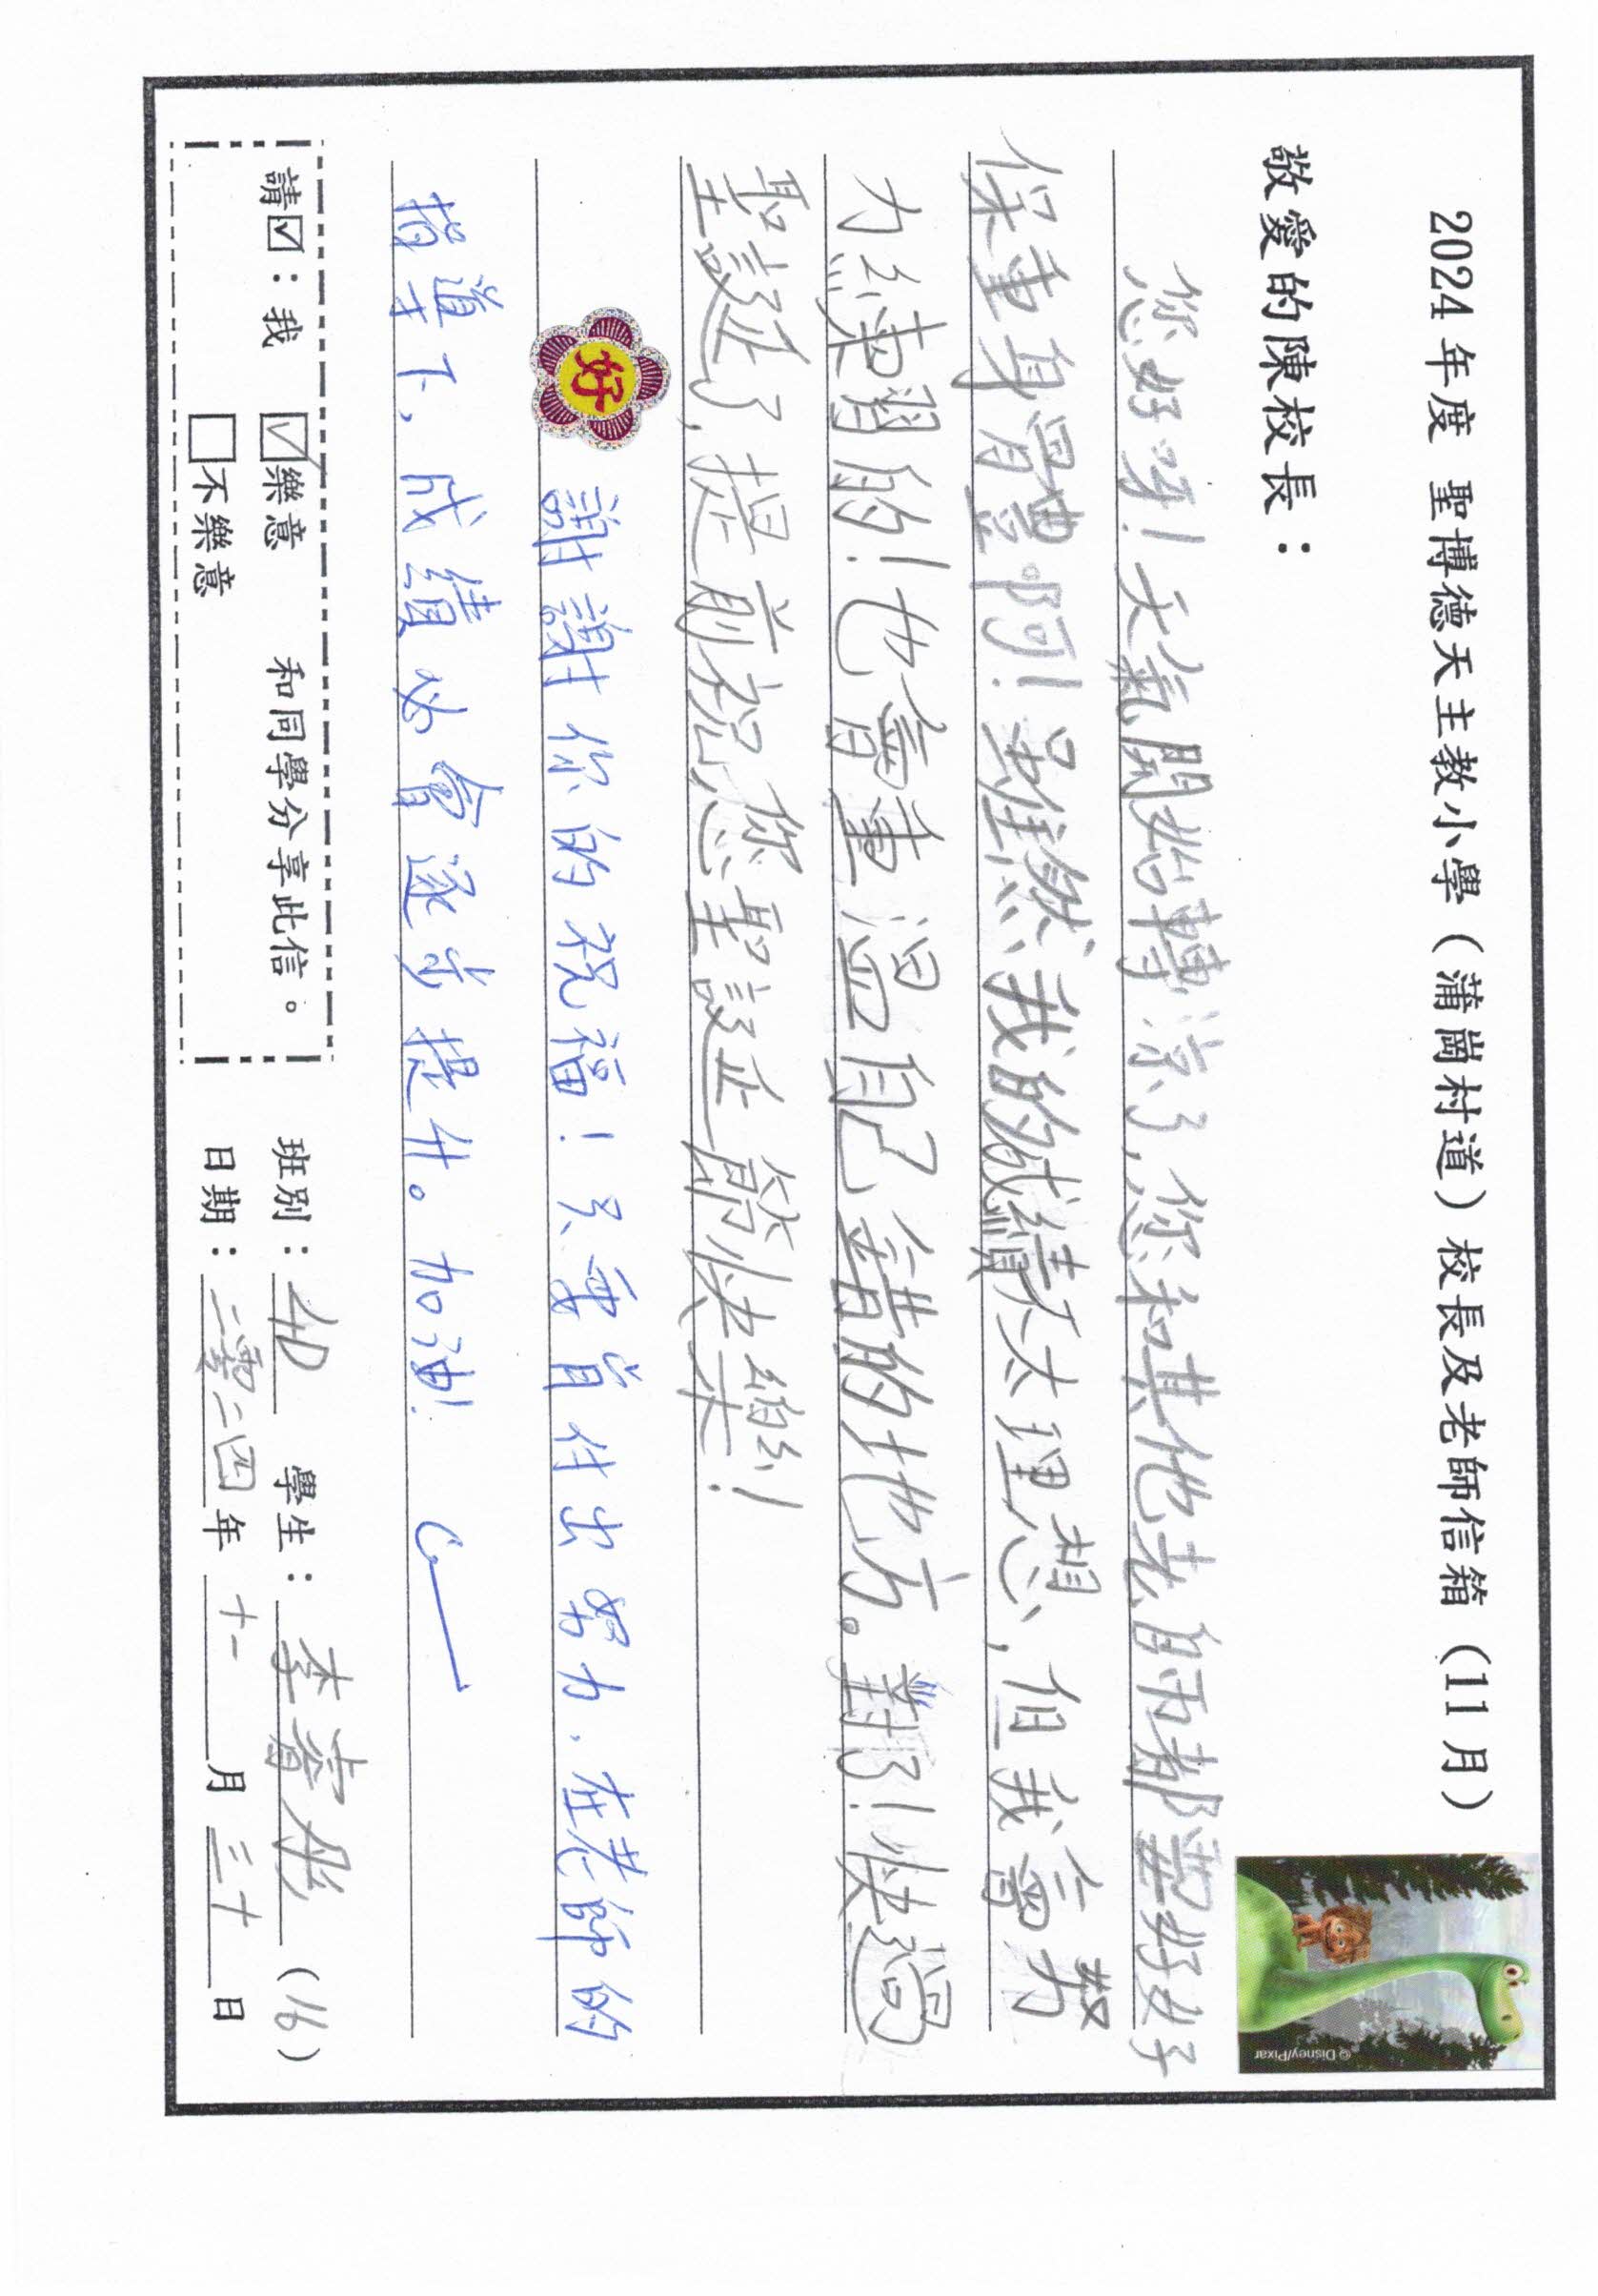 2024 年度 聖博德天主教小學（蒲崗村道）校長及老師信箱（11 月）
© Disney/Pixar
敬愛的陳校長：
您好呀！天氣開始轉涼了，您和其他老師都要好好
保重身體啊！雖然我的成績不太理想，但我會努
力練習的！也會重溫自己錯的地方。對了！快過
聖誕了，提前祝您聖誕節快樂！
好
謝謝你的祝福！只要肯付出努力，在老師的
指導下，成績必會逐步提升。加油！
請☑：我 ☑樂意 和同學分享此信。
□不樂意
班別：4D 學生：李睿彤（16）
日期：二零二四年十一月三十日